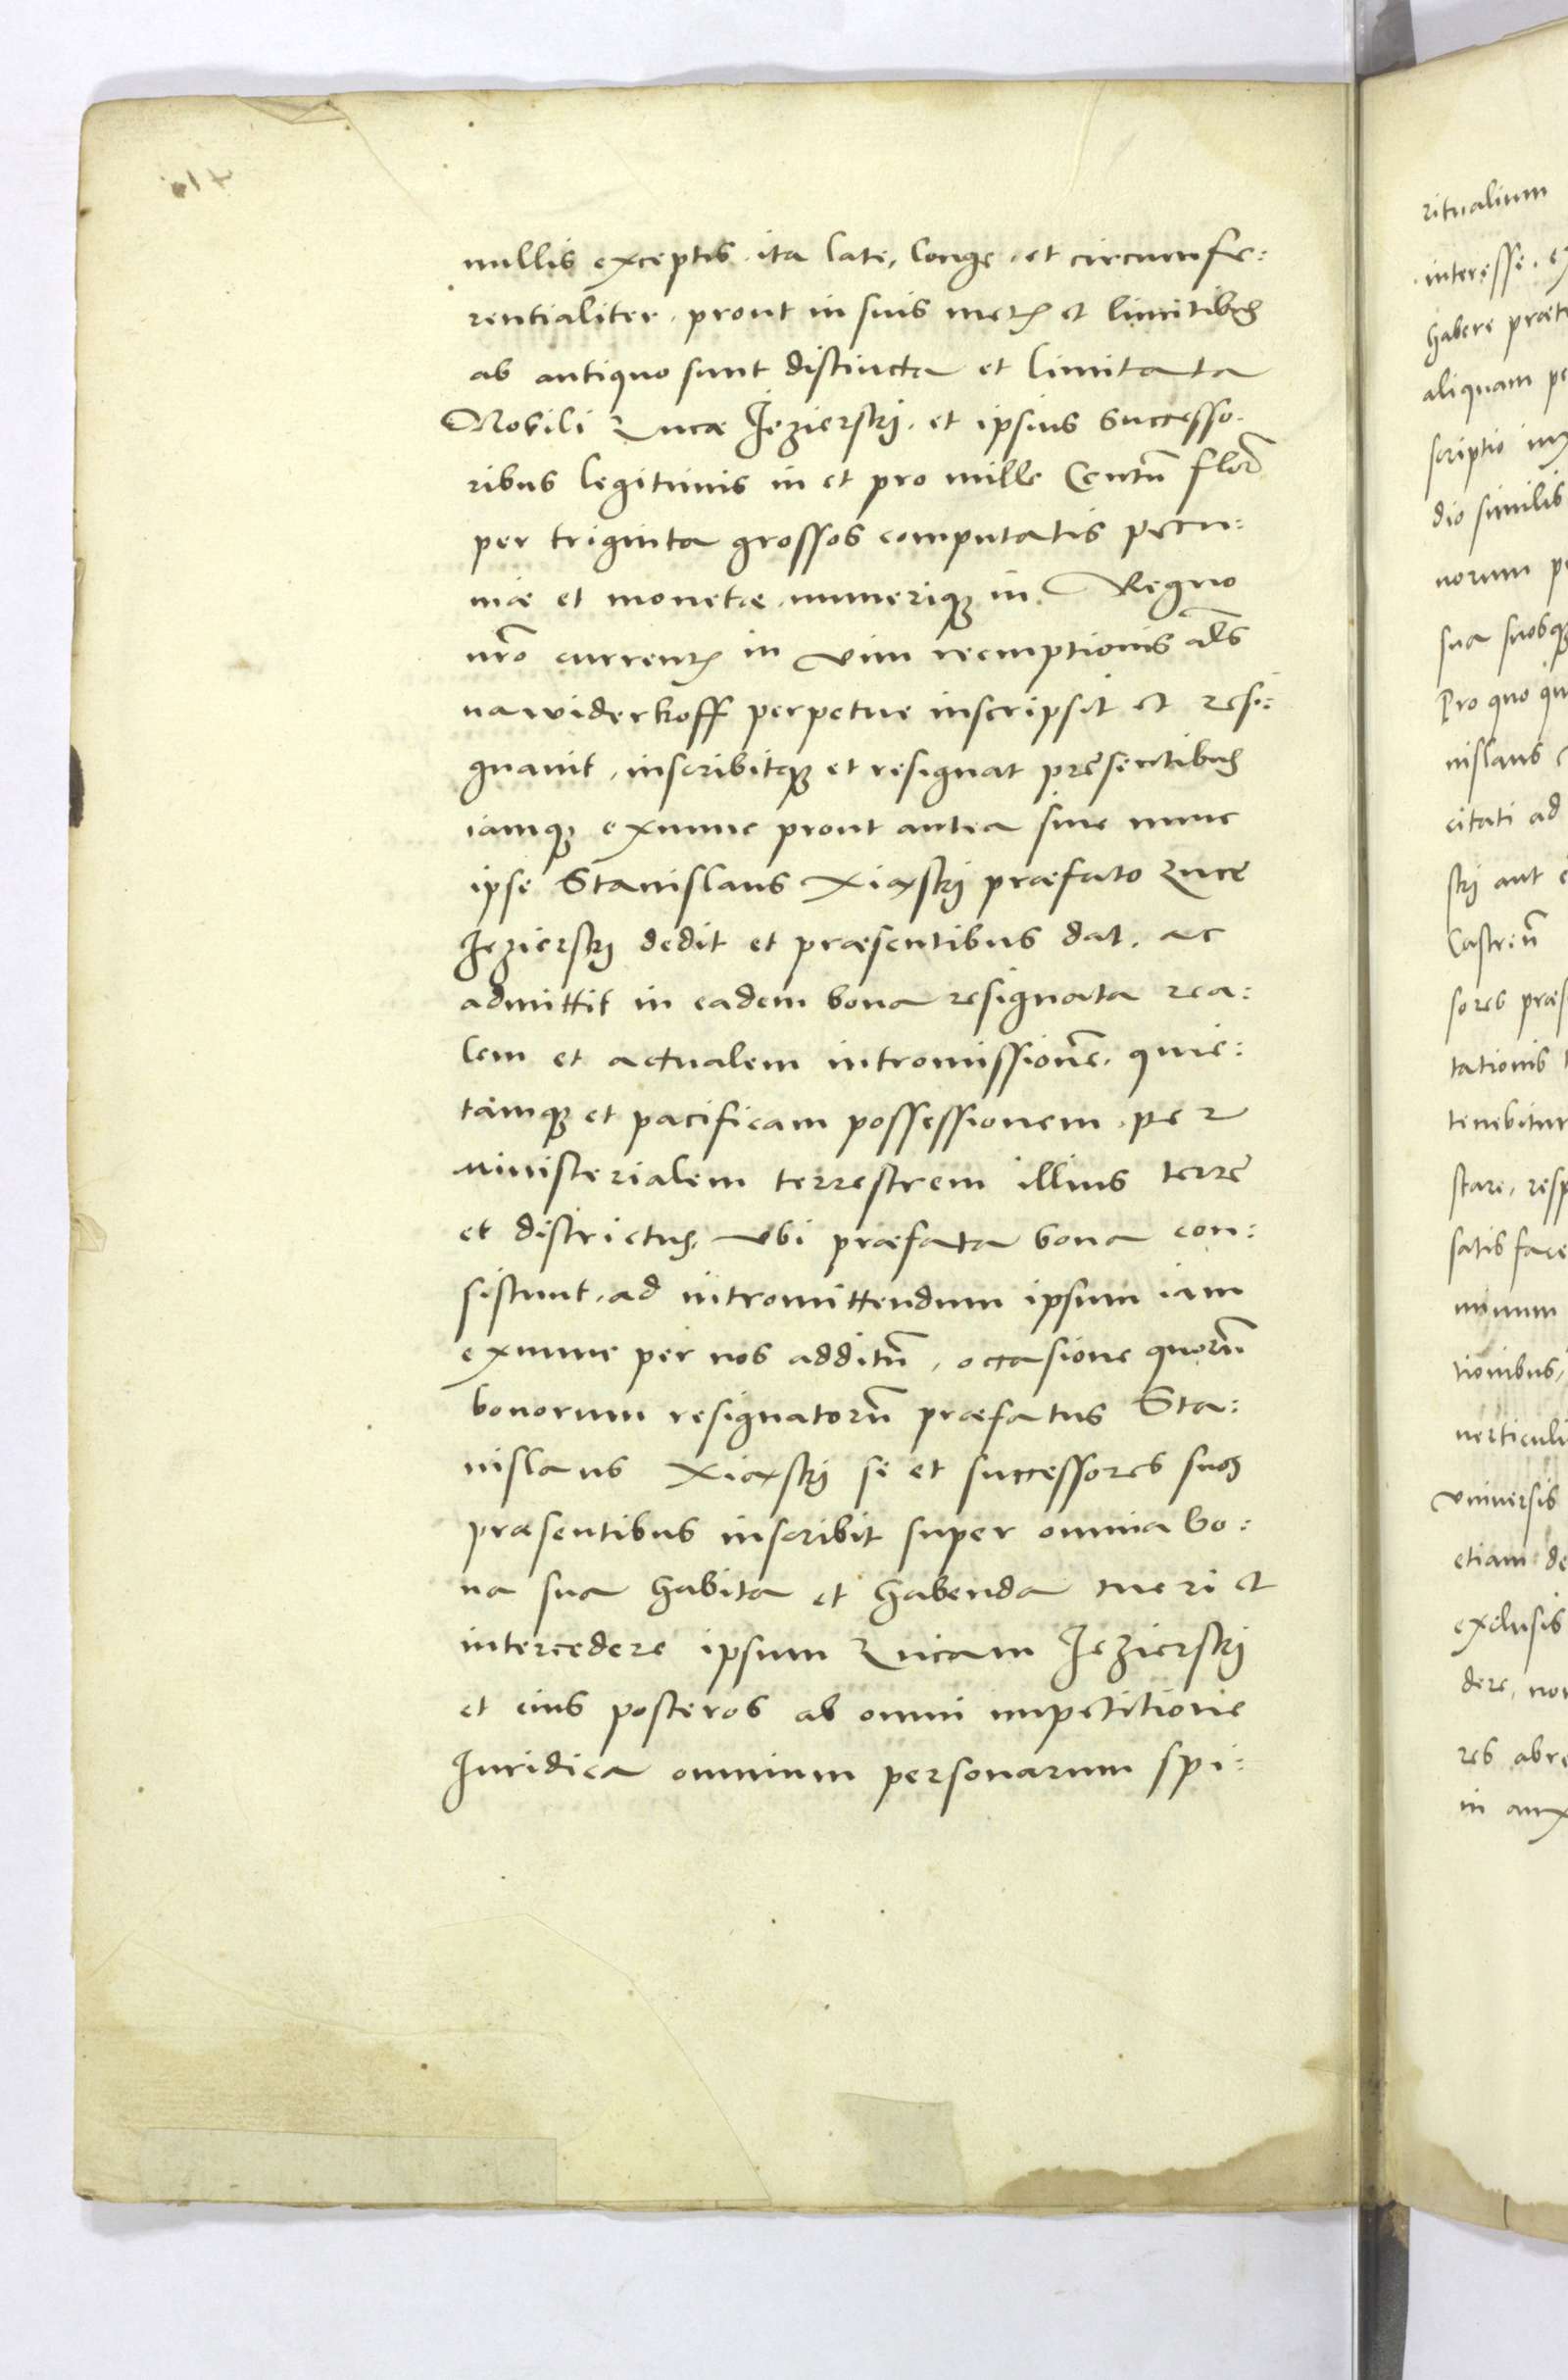 nullis exceptis, ita late, longe, et circumfe:
rentialiter, prout in suis metꝭ et limitibꝰ
ab antiquo sunt distincta et limitata
Nobili Lucæ Jezierskj, et ipsius successo-
ribus legitimis in et pro mille Centũ florẽ
per triginta grossos computatis pecu:
niæ et monetæ, numeriqꝫ in Regno
nr̃o currentꝭ in vim reemptionis al̃s
nawiderkoff perpetue inscripsit et resi:
gnauit, inscribitqꝫ et resignat præsentibꝰ
iamqꝫ exnunc prout antea siue nunc
ipse Stanislaus Xiaskj præfato Lucę
Jezierskj dedit et præsentibus dat, ac
admittit in eadem bona resignata rea:
lem et actualem intromissionẽ, quie:
tamqꝫ et pacificam possessionem, per
ministerialem terrestrem illius terrę
et districtus, vbi præfata bona con:
sistunt, ad intromittendum ipsum iam
exnunc per nos additũ, occasione quorũ
bonorum resignatorũ præfatus Sta:
nislaus Xiaskj se et successores suos
præsentibus inscribit super omnia bo:
na sua habita et habenda tueri et
intercedere ipsum Lucam Jezierskj
et eius posteros ab omni impetitione
Juridica omnium personarum spi:
ritualium
interesse, ex
habere præte
aliquam pe
scriptio
dio similis
norum p
sua suosqꝫ
Pro quo qu
nislaus
citati ad
skj aut e
Castreñ
sores præs
tationis
tenebitur
stare, resp
satisface
nimum
tionibus,
uerticuli
vniuersis
etiam de
exclusis
dere, non
res abre
in aux